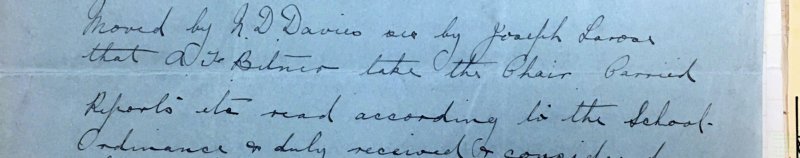 Moved by N. D. Davies sec by Joseph Larose
that A. F. Bitner take the Chair Carried
Reports etc read according to the School-
Ordinance & duly received & considered